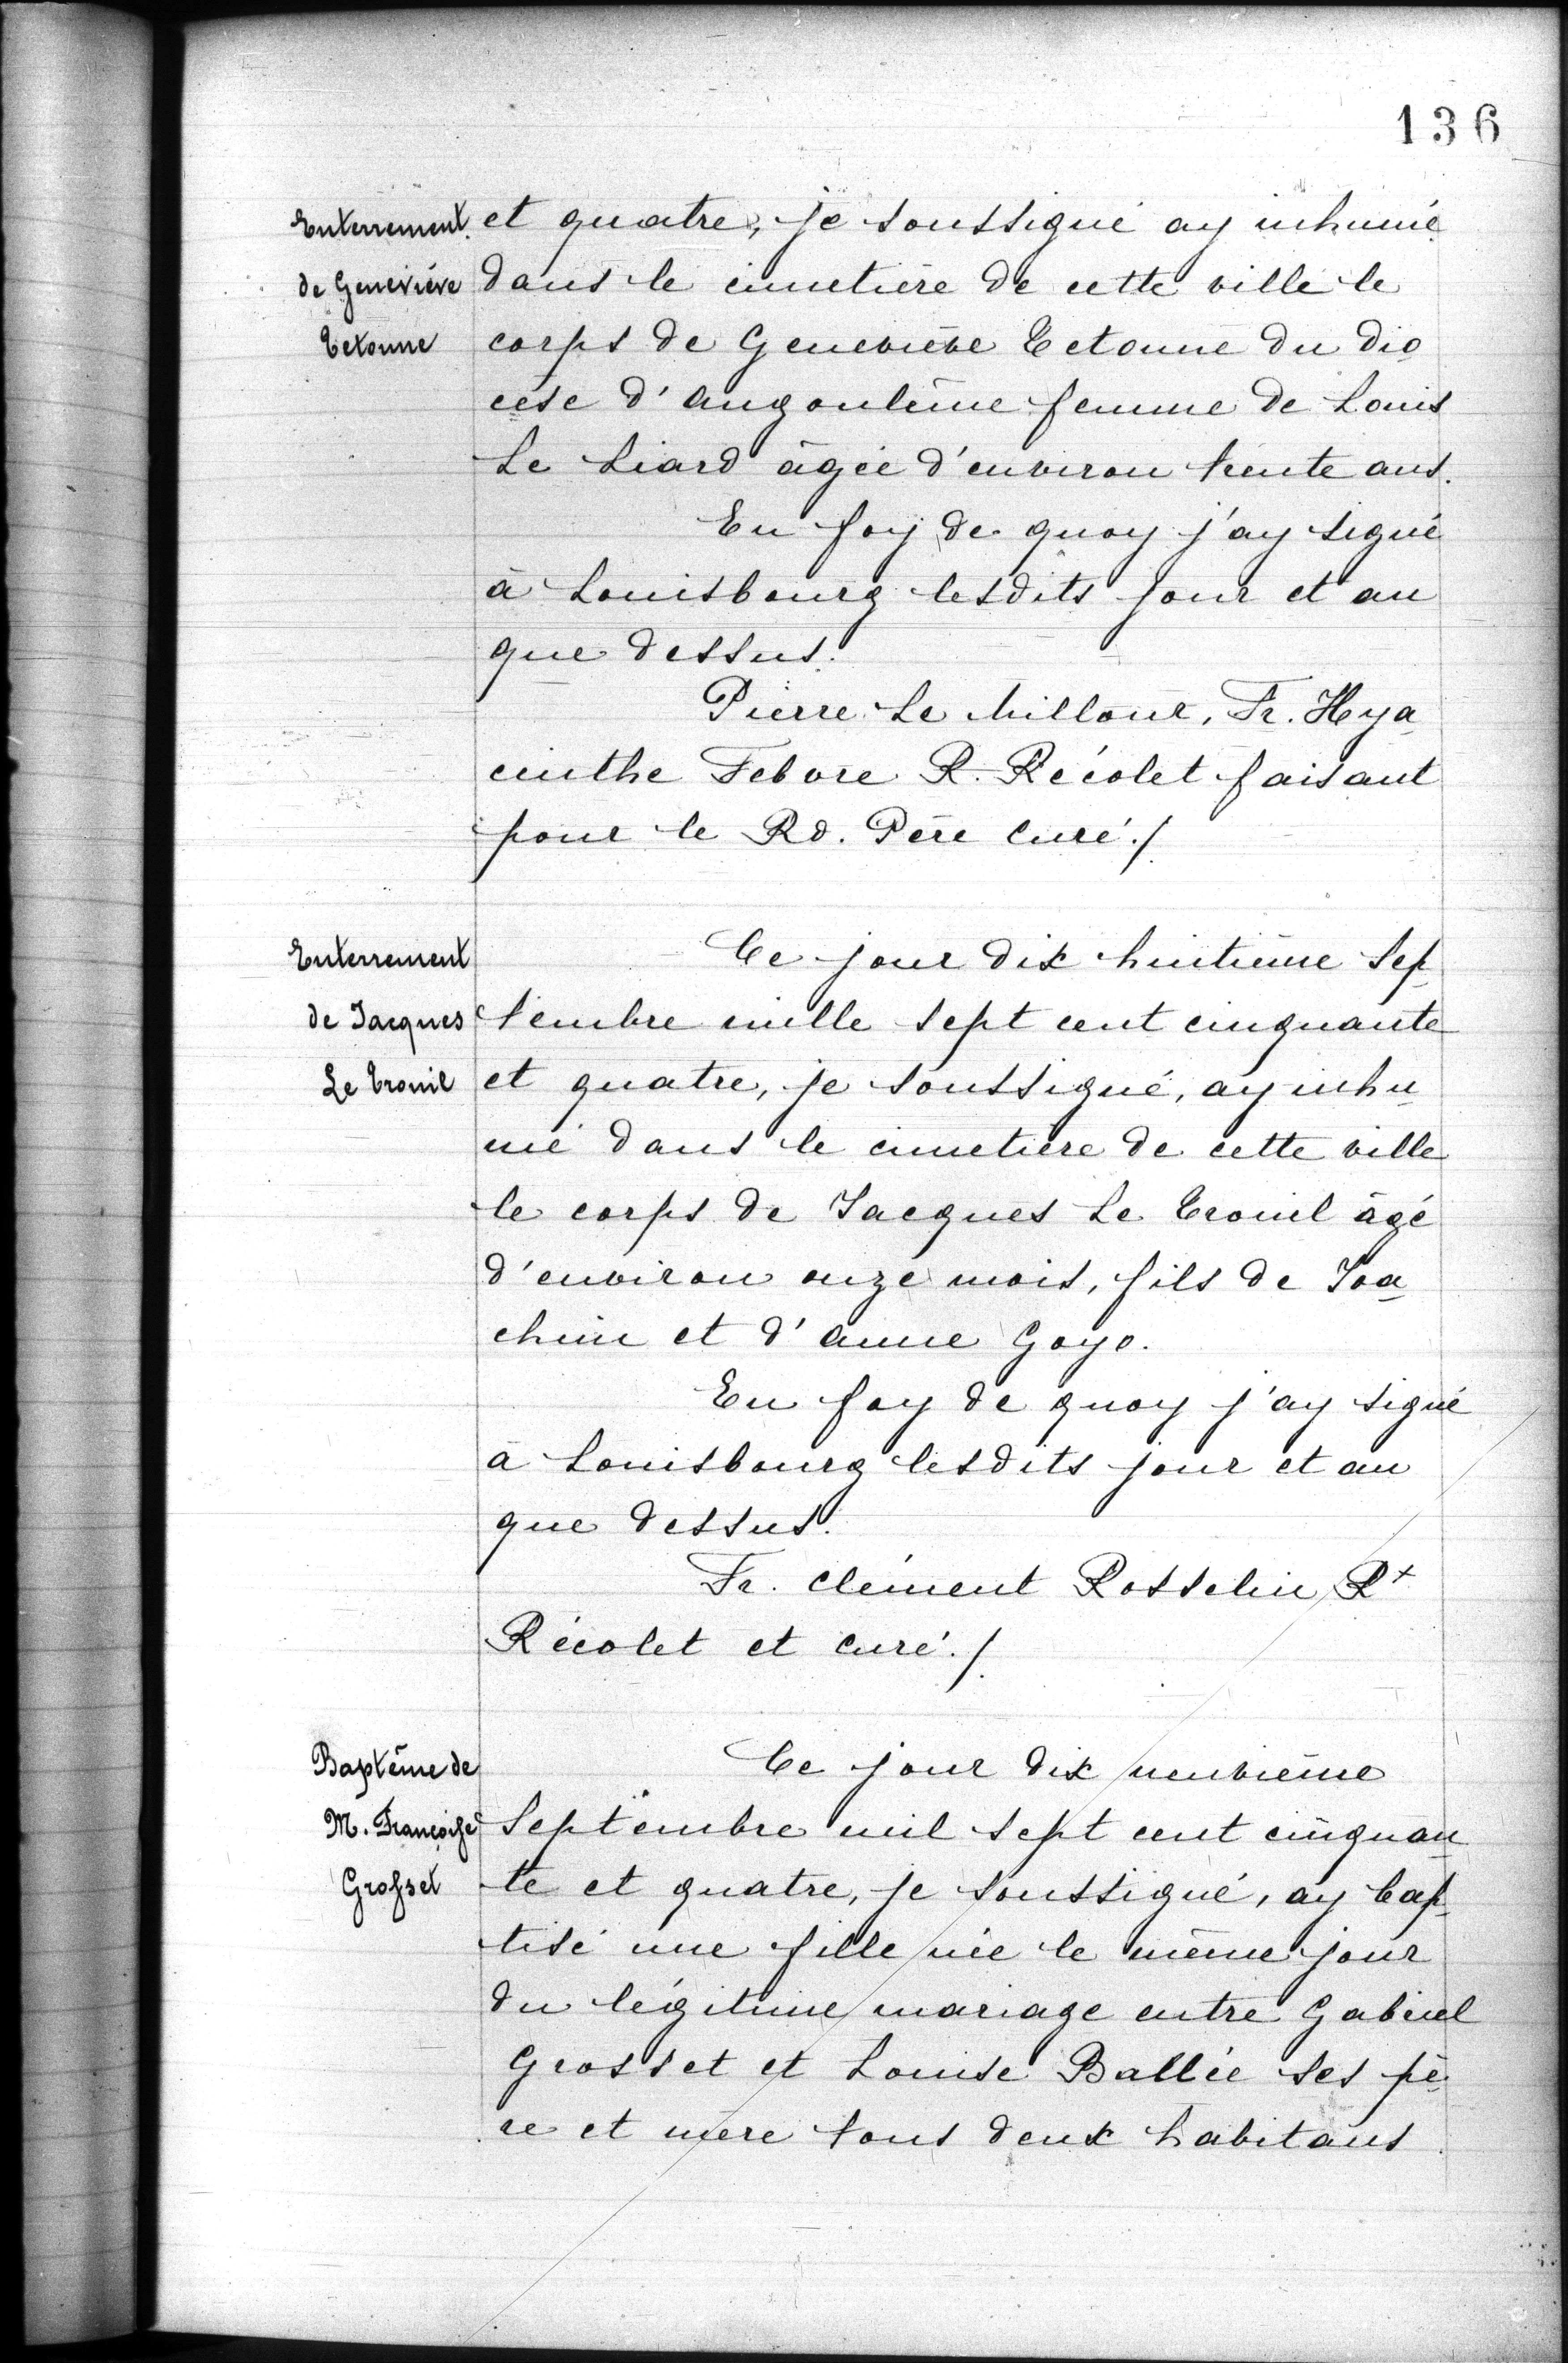 136
Enterrement
de Geneviève
Tetonne
et quatre, je soussigné ay inhumé
dans le cimetière de cette ville le
corps de Geneviève Tetonne du dio
cèse d'Angoulême femme de Louis
Le Liard âgée d'environ trente ans.
En foy de quoy j'ay signé
à Louisbourg lesdits jour et an
que dessus.
Pierre Le Millour, Fr. Hya
cinthe Febvre R. Récolet faisant
pour le Rd. Père Curé./.
Enterrement
de Jacques
Le Trouil
Ce jour dix huitième Sep
tembre mille sept cent cinquante
et quatre, je soussigné, ay inhu
mé dans le cimetière de cette ville
le corps de Jacques Le Trouil âgé
d'environ onze mois, fils de Joa
chim et d'Anne Goyo.
En foy de quoy j'ay signé
à Louisbourg lesdits jour et an
que dessus.
Fr. Clément Rosselin R+
Récolet et curé./.
Baptême de
M. Françoise
Grosset
Ce jour dix neuvième
Septembre mil sept cent cinquan
te et quatre, je soussigné, ay bap
tisé une fille née le même jour
du légitime mariage entre Gabriel
Grosset et Louise Ballée ses pè
re et mère tous deux habitans